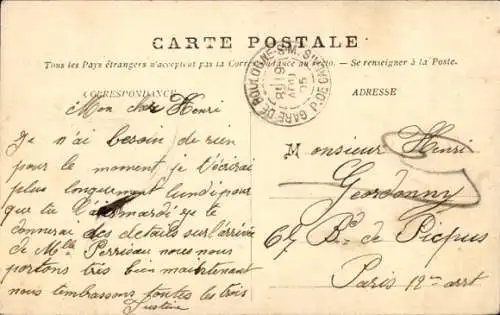 CARTE POSTALE
Tous les Pays étrangers n'acceptent pas la Correspondance au recto. — Se renseigner à la Poste.
CORRESPONDANCE
ADRESSE
GARE DE BOULOGNE-S-M.
05
Mon cher Henri
Je n'ai besoin de rien
pour le moment je t'écrirai
plus longuement lundi pour
que tu l'aies mardi je te
donnerai des details sur l'arrivée
de Mlle Perrieau nous nous
portons très bien maintenant
nous t'embrassons toutes les trois
Justine
Monsieur Henri
Geordonny
67 Bd de Picpus
Paris 12me arrt